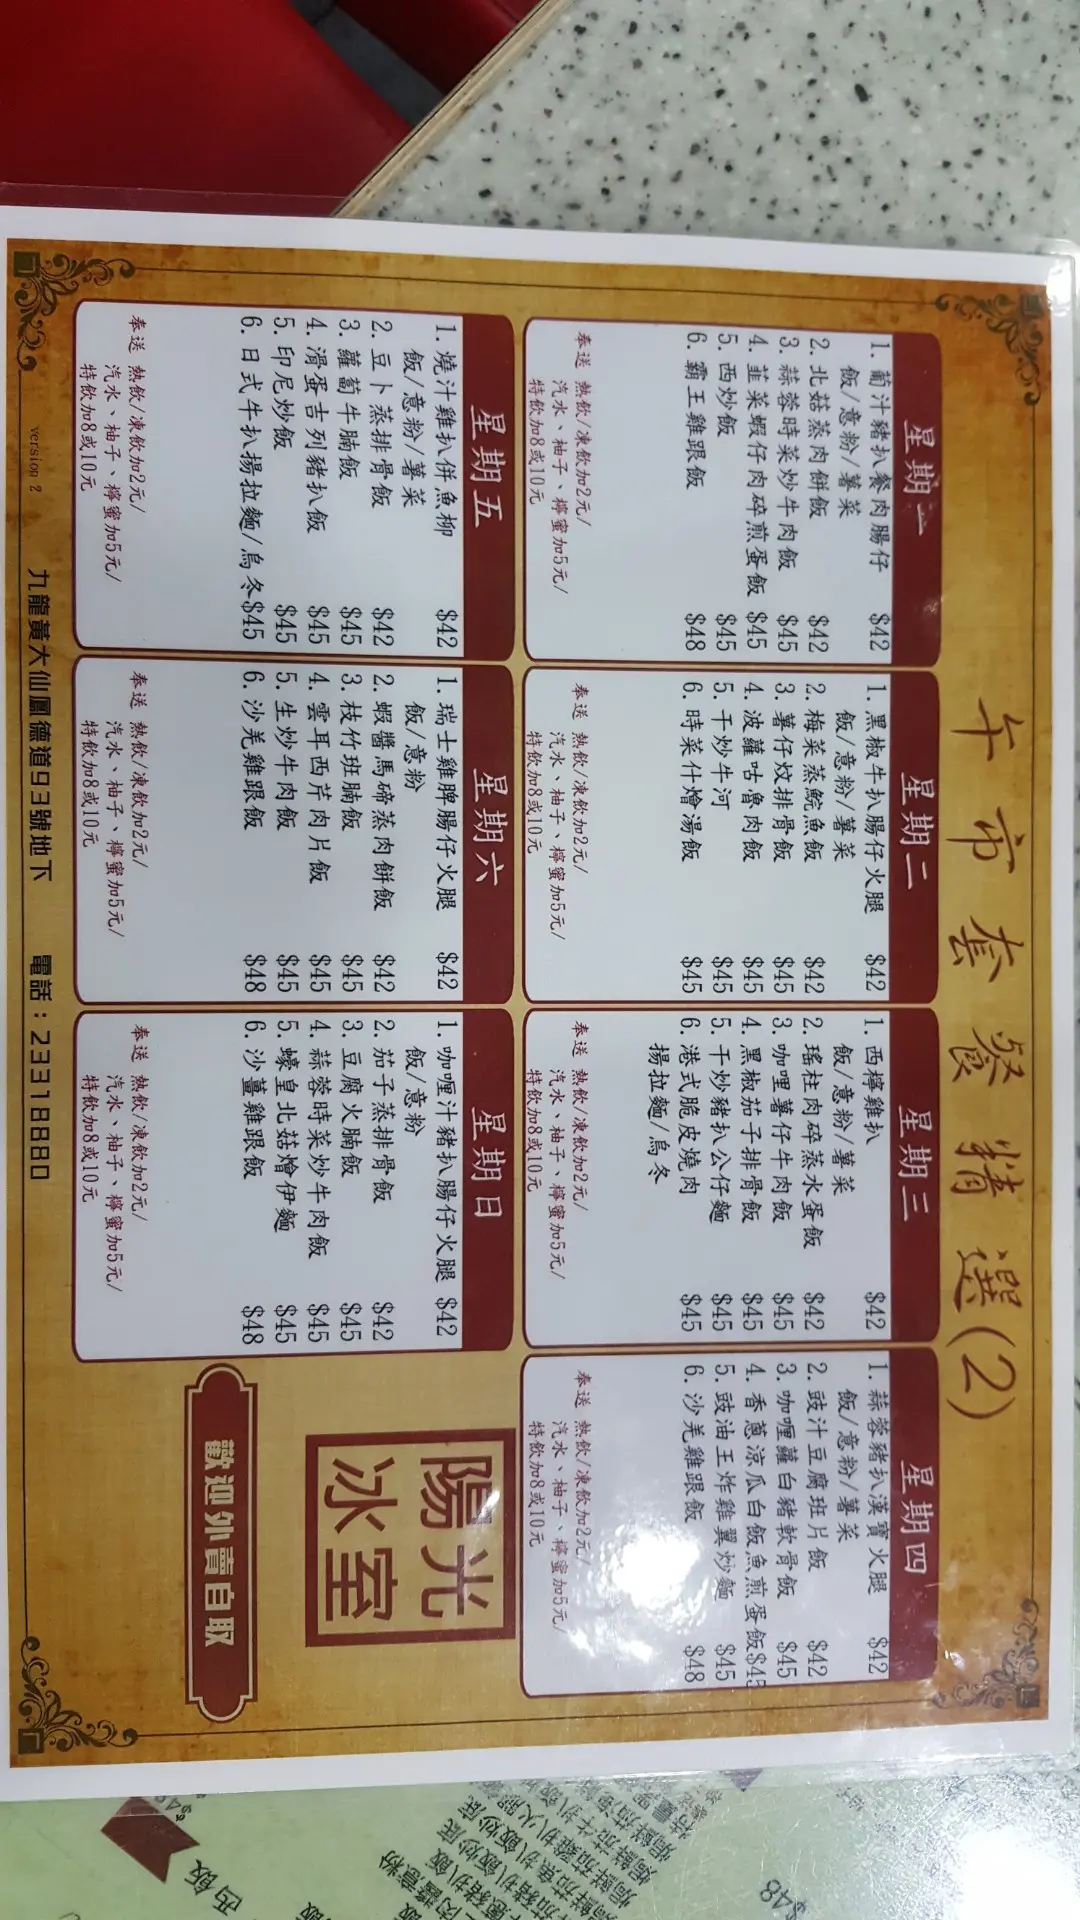 午市套餐精選(2)
星期一
1. 葡汁豬扒餐肉腸仔 $42
飯/意粉/薯菜
2. 北菇蒸肉餅飯 $42
3. 蒜蓉時菜炒牛肉飯 $45
4. 韮菜蝦仔肉碎煎蛋飯 $45
5. 西炒飯 $45
6. 霸王雞跟飯 $48
奉送 熱飲/凍飲加2元/
汽水、柚子、檸蜜加5元/
特飲加8或10元
星期二
1. 黑椒牛扒腸仔火腿 $42
飯/意粉/薯菜
2. 梅菜蒸鯇魚飯 $42
3. 薯仔炆排骨飯 $45
4. 波蘿咕魯肉飯 $45
5. 干炒牛河 $45
6. 時菜什燴湯飯 $45
奉送 熱飲/凍飲加2元/
汽水、柚子、檸蜜加5元/
特飲加8或10元
星期三
1. 西檸雞扒 $42
飯/意粉/薯菜
2. 瑤柱肉碎蒸水蛋飯 $42
3. 咖哩薯仔牛肉飯 $45
4. 黑椒茄子排骨飯 $45
5. 干炒豬扒公仔麵 $45
6. 港式脆皮燒肉 $45
揚拉麵/烏冬
奉送 熱飲/凍飲加2元/
汽水、柚子、檸蜜加5元/
特飲加8或10元
星期四
1. 蒜蓉豬扒漢寶火腿 $42
飯/意粉/薯菜
2. 豉汁豆腐班片飯 $42
3. 咖喱蘿白豬軟骨飯 $45
4. 香蔥涼瓜白飯魚煎蛋飯$45
5. 豉油王炸雞翼炒麵 $45
6. 沙羌雞跟飯 $48
奉送 熱飲/凍飲加2元/
汽水、柚子、檸蜜加5元/
特飲加8或10元
星期五
1. 燒汁雞扒併魚柳 $42
飯/意粉/薯菜
2. 豆卜蒸排骨飯 $42
3. 蘿蔔牛腩飯 $45
4. 滑蛋吉列豬扒飯 $45
5. 印尼炒飯 $45
6. 日式牛扒揚拉麵/烏冬$45
奉送 熱飲/凍飲加2元/
汽水、柚子、檸蜜加5元/
特飲加8或10元
星期六
1. 瑞士雞脾腸仔火腿 $42
飯/意粉
2. 蝦醬馬碲蒸肉餅飯 $42
3. 枝竹班腩飯 $45
4. 雲耳西芹肉片飯 $45
5. 生炒牛肉飯 $45
6. 沙羌雞跟飯 $48
奉送 熱飲/凍飲加2元/
汽水、柚子、檸蜜加5元/
特飲加8或10元
星期日
1. 咖喱汁豬扒腸仔火腿 $42
飯/意粉
2. 茄子蒸排骨飯 $42
3. 豆腐火腩飯 $45
4. 蒜蓉時菜炒牛肉飯 $45
5. 蠔皇北菇燴伊麵 $45
6. 沙薑雞跟飯 $48
奉送 熱飲/凍飲加2元/
汽水、柚子、檸蜜加5元/
特飲加8或10元
陽光
冰室
歡迎外賣自取
version 2
九龍黃大仙鳳德道93號地下 電話：23318880
$48
西飯